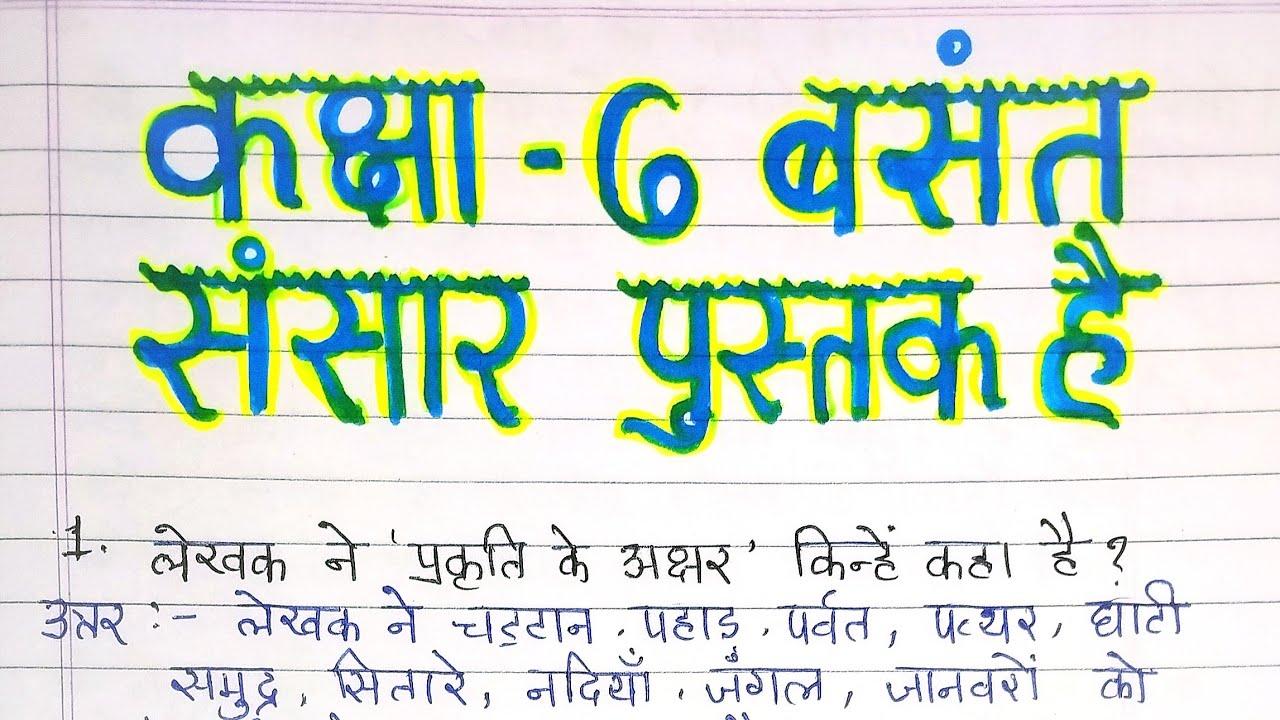 कक्षा - 6 बसंत
संसार पुस्तक है
1. लेखक ने 'प्रकृति के अक्षर' किन्हें कहा है ?
उत्तर :- लेखक ने चट्टान, पहाड़, पर्वत, पत्थर, घाटी
समुद्र, सितारे, नदियाँ, जंगल, जानवरों को